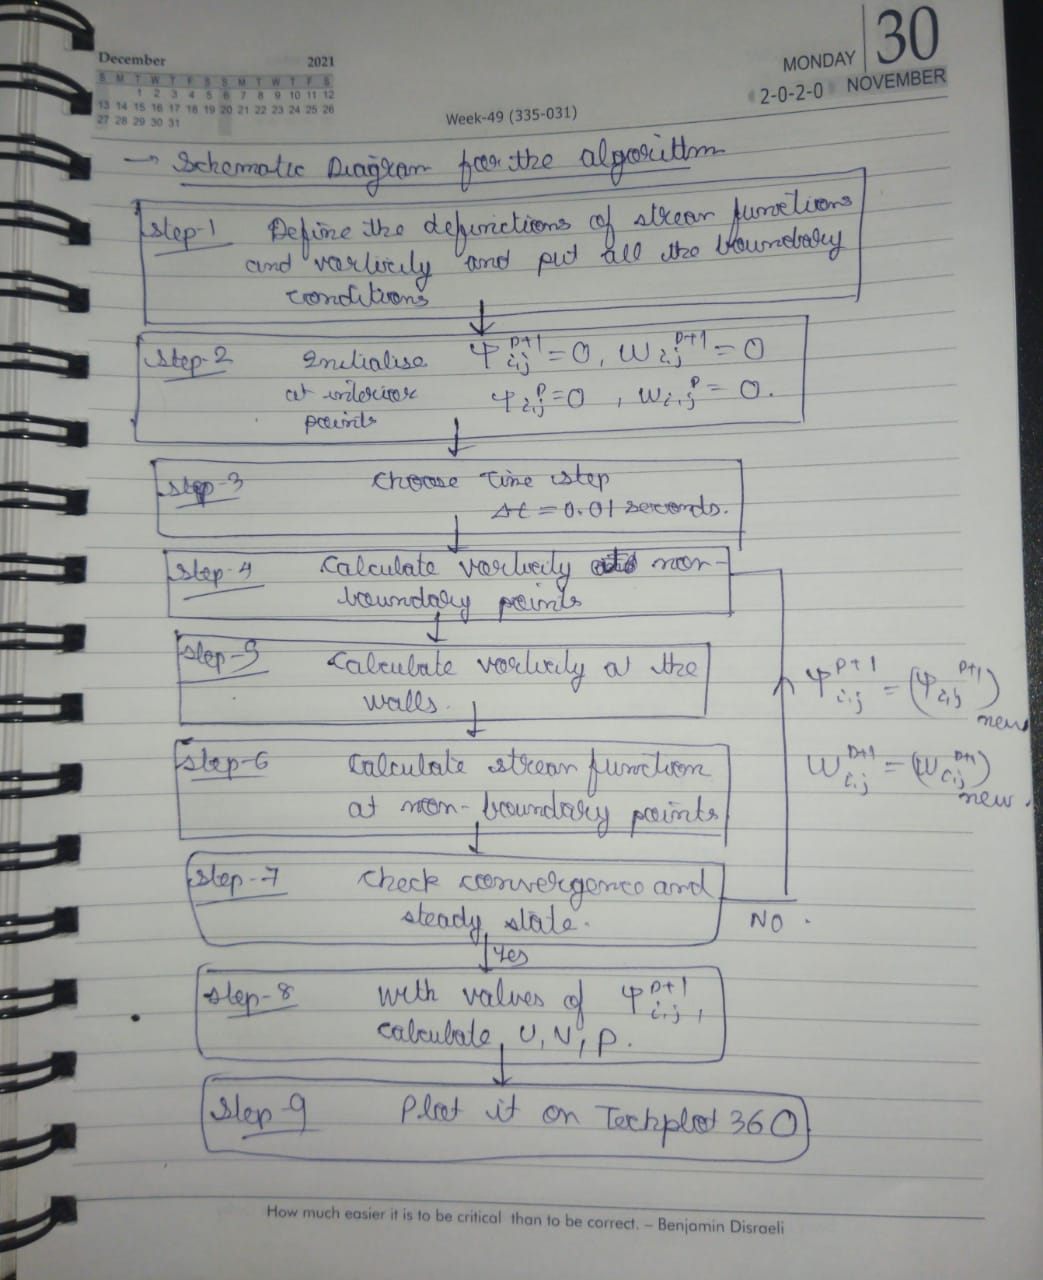 December 2021
S M T W T F S S M T W T F S
1 2 3 4 5 6 7 8 9 10 11 12
13 14 15 16 17 18 19 20 21 22 23 24 25 26
27 28 29 30 31
Week-49 (335-031)
MONDAY 30
2-0-2-0 NOVEMBER
→ Schematic Diagram for the algorithm
Step-1 Define the definctions of stream functions
and vorticity and put all the boundary
conditions
Step-2 Initialise ψ_{i,j}^{p+1} = 0, ω_{i,j}^{p+1} = 0
at interior ψ_{i,j}^{p} = 0, ω_{i,j}^{p} = 0.
points
Step-3 Choose Time step
Δt = 0.01 seconds.
Step-4 Calculate vorticity non-
boundary points
Step-5 Calculate vorticity at the
walls.
ψ_{i,j}^{p+1} = (ψ_{i,j}^{p+1})_{new}
ω_{i,j}^{p+1} = (ω_{i,j}^{p+1})_{new}.
Step-6 Calculate stream function
at non-boundary points
Step-7 Check convergence and
steady state.
NO.
Yes
Step-8 With values of ψ_{i,j}^{p+1},
calculate, U, V, P.
Step-9 Plot it on Techplot 360
How much easier it is to be critical than to be correct. – Benjamin Disraeli